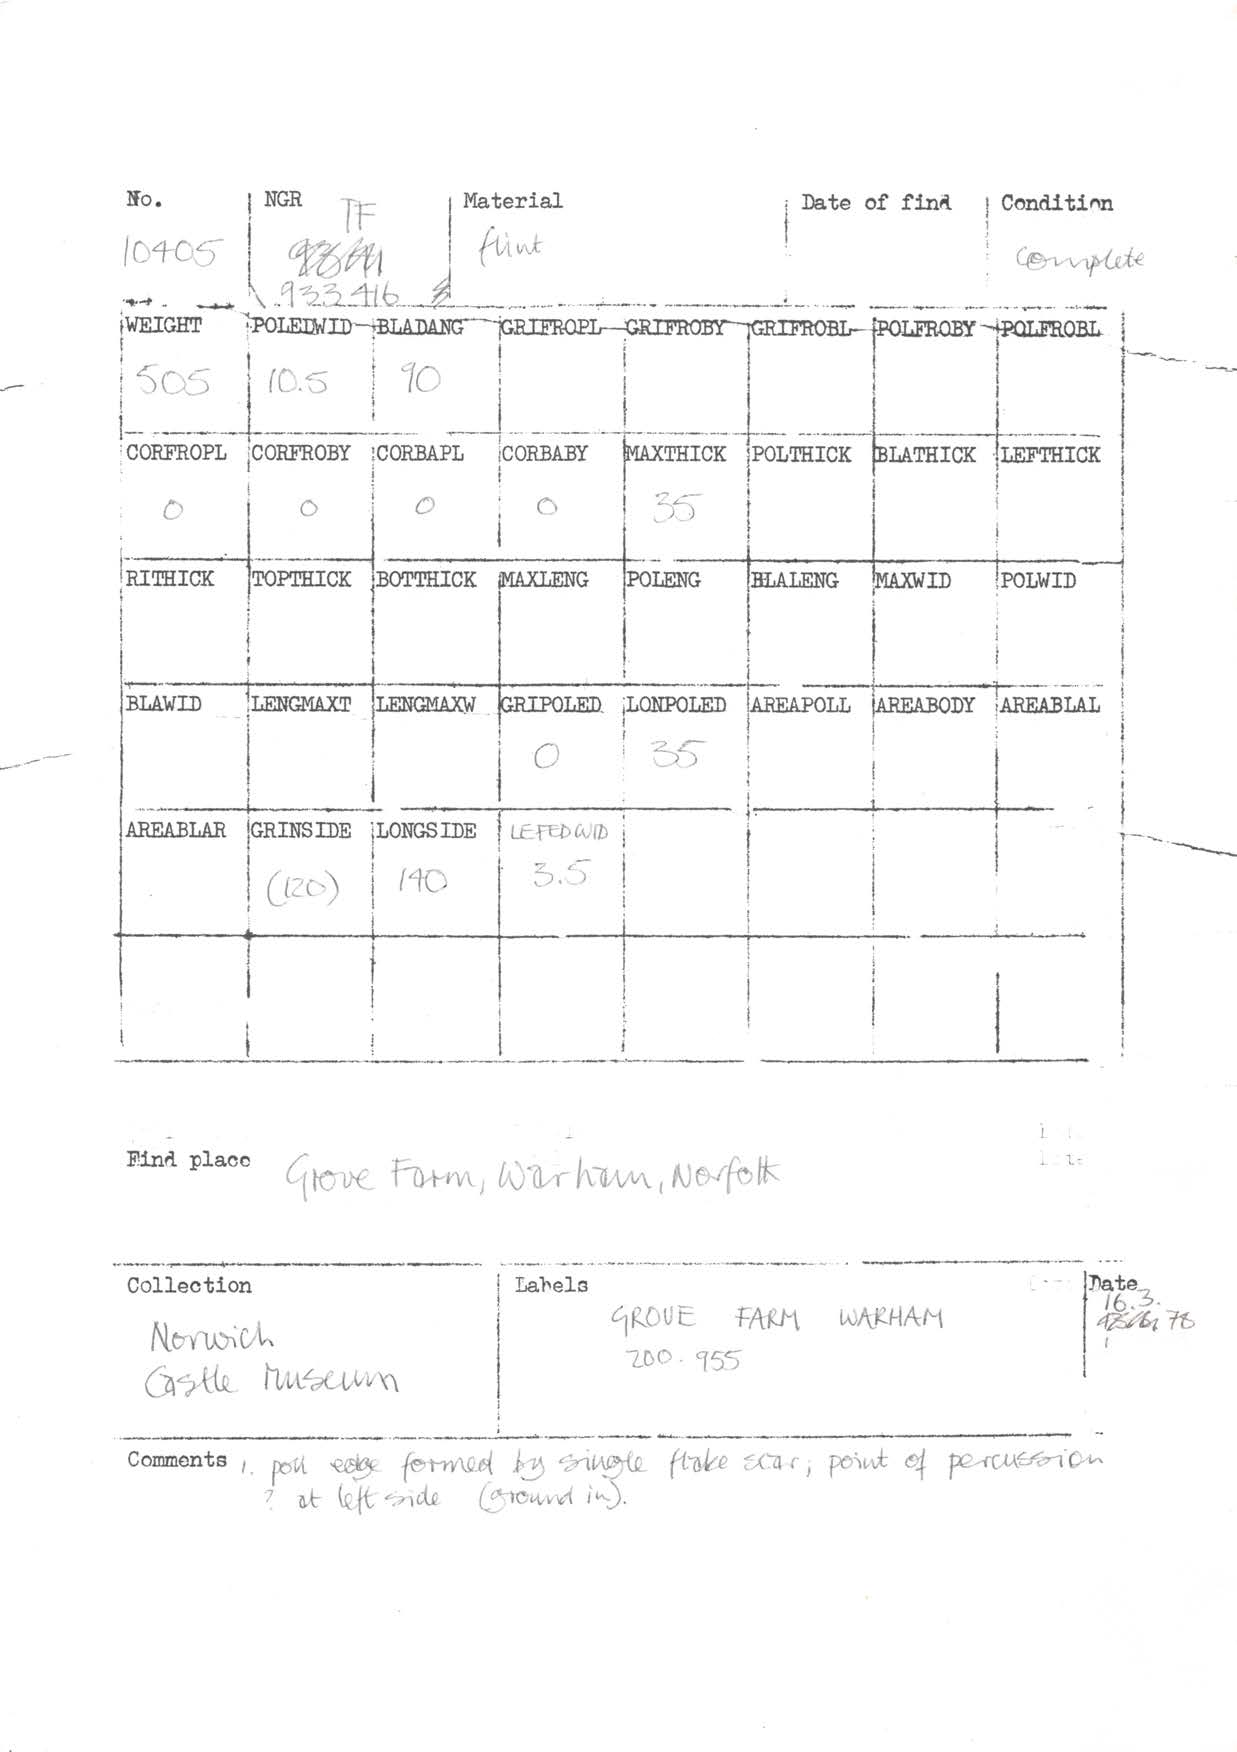 No. NGR Material Date of find Condition
10405 TF flint complete
933416
WEIGHT POLEDWID BLADANG GRIFROPL GRIFROBY GRIFROBL POLFROBY POLFROBL
505 10.5 90
CORFROPL CORFROBY CORBAPL CORBABY MAXTHICK POLTHICK BLATHICK LEFTHICK
0 0 0 0 35
RITHICK TOPTHICK BOTTHICK MAXLENG POLENG BLALENG MAXWID POLWID
BLAWID LENGMAXT LENGMAXW GRIPOLED LONPOLED AREAPOLL AREABODY AREABLAL
0 35
AREABLAR GRINSIDE LONGSIDE LEFEDWID
(120) 140 3.5
Find place Grove Farm, Warham, Norfolk
Collection Labels Date
Norwich GROVE FARM WARHAM 16.3.
Castle Museum 200.955 78
Comments 1. poll edge formed by single flake scar; point of percussion
? at left side (ground in).